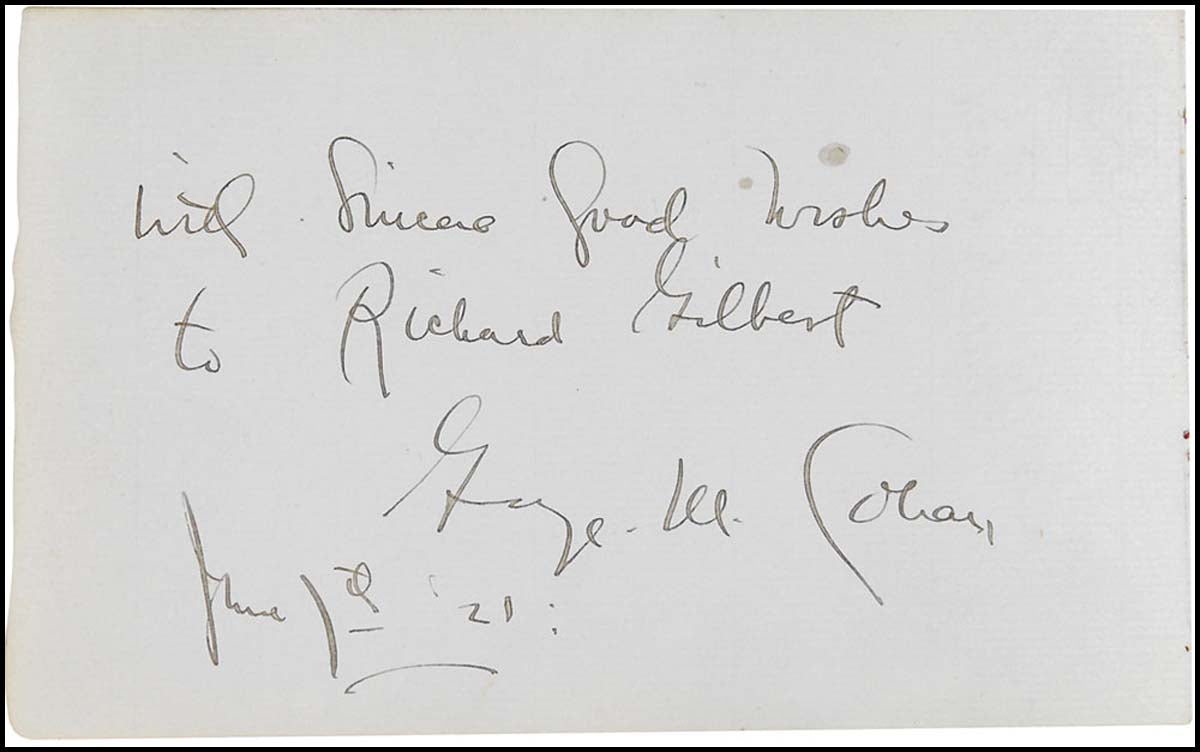 With Sincere Good Wishes
to Richard Gilbert
George. M. Cohan,
June 7th '21: